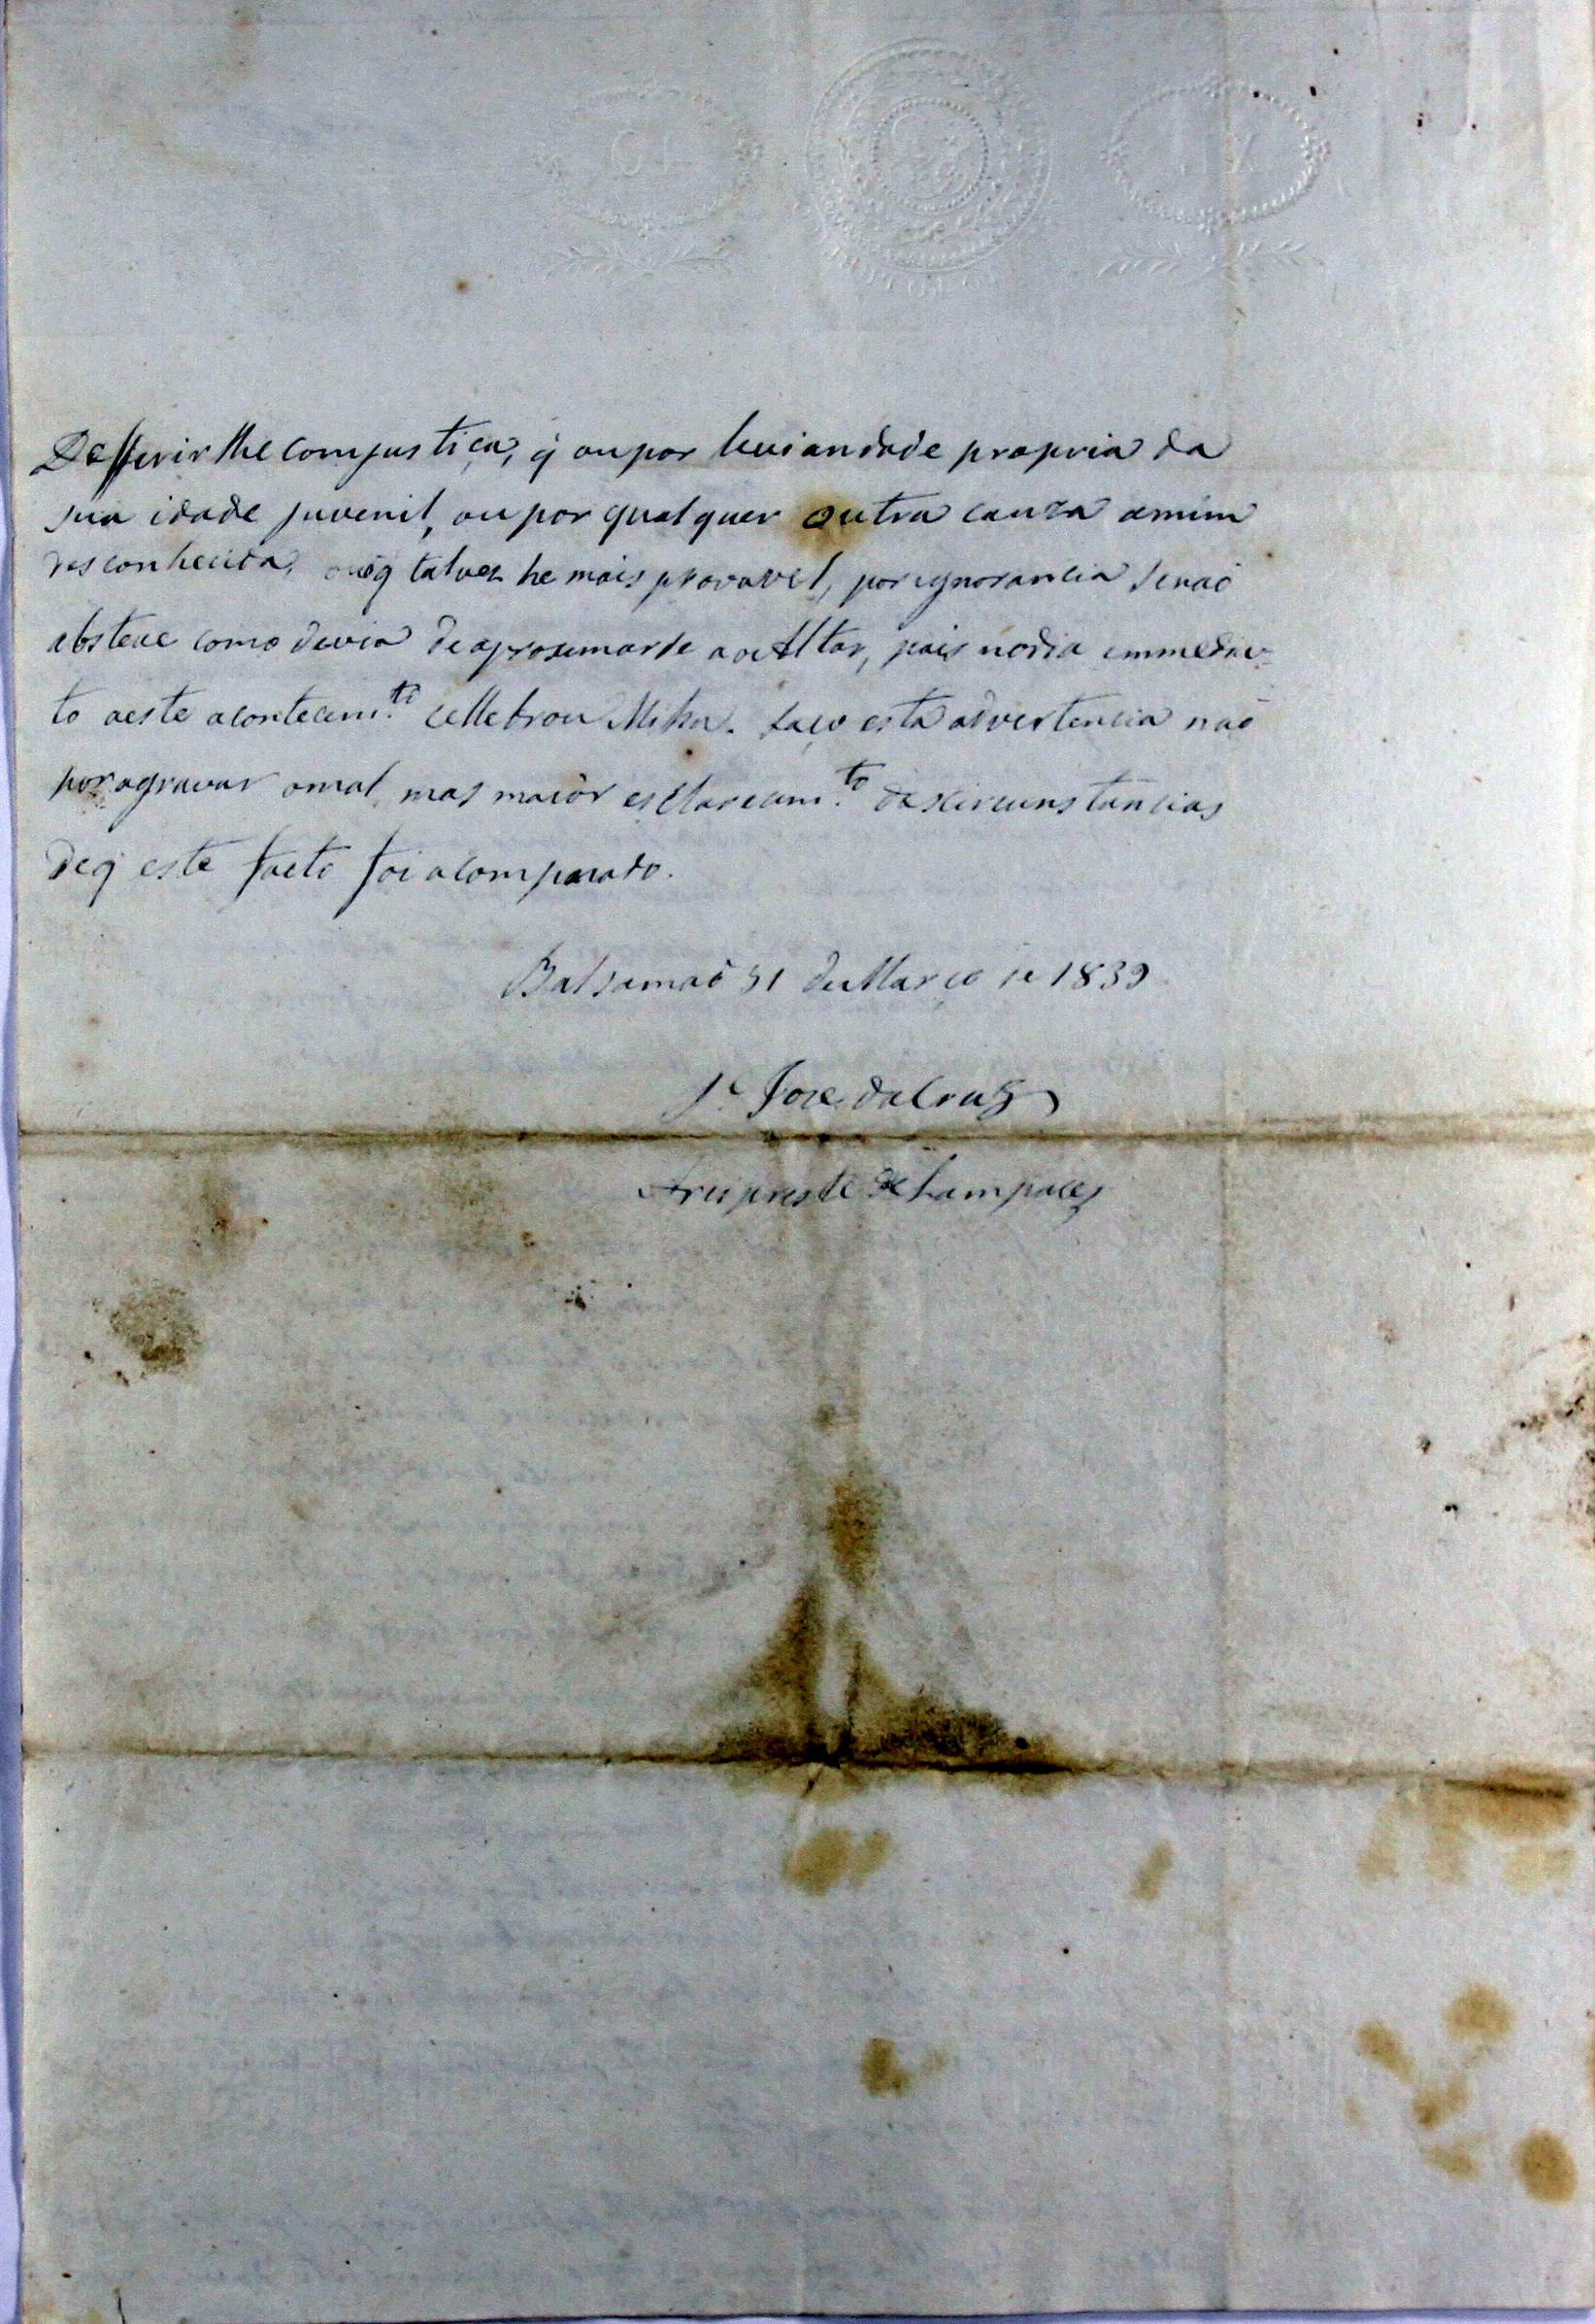 Defferir lhe com justiça, q̃ ou por leviandade propria da
sua idade juvenil, ou por qualquer outra cauza a mim
desconhecida, ou oq̃ talves he mais provavel, por ignorancia senaõ
absteve como devia de aproximarse ao Altar, pois nodia immedia-
to aeste acontecim.to cellebrou Missa. Faço esta advertencia naõ
por agravar o mal, mas maior esclarecim.to das circunstancias
deq̃ este facto foi acompanado.
Balsamaõ 31 de Março de 1839
José da Cruz
Arcipreste de Lampaces